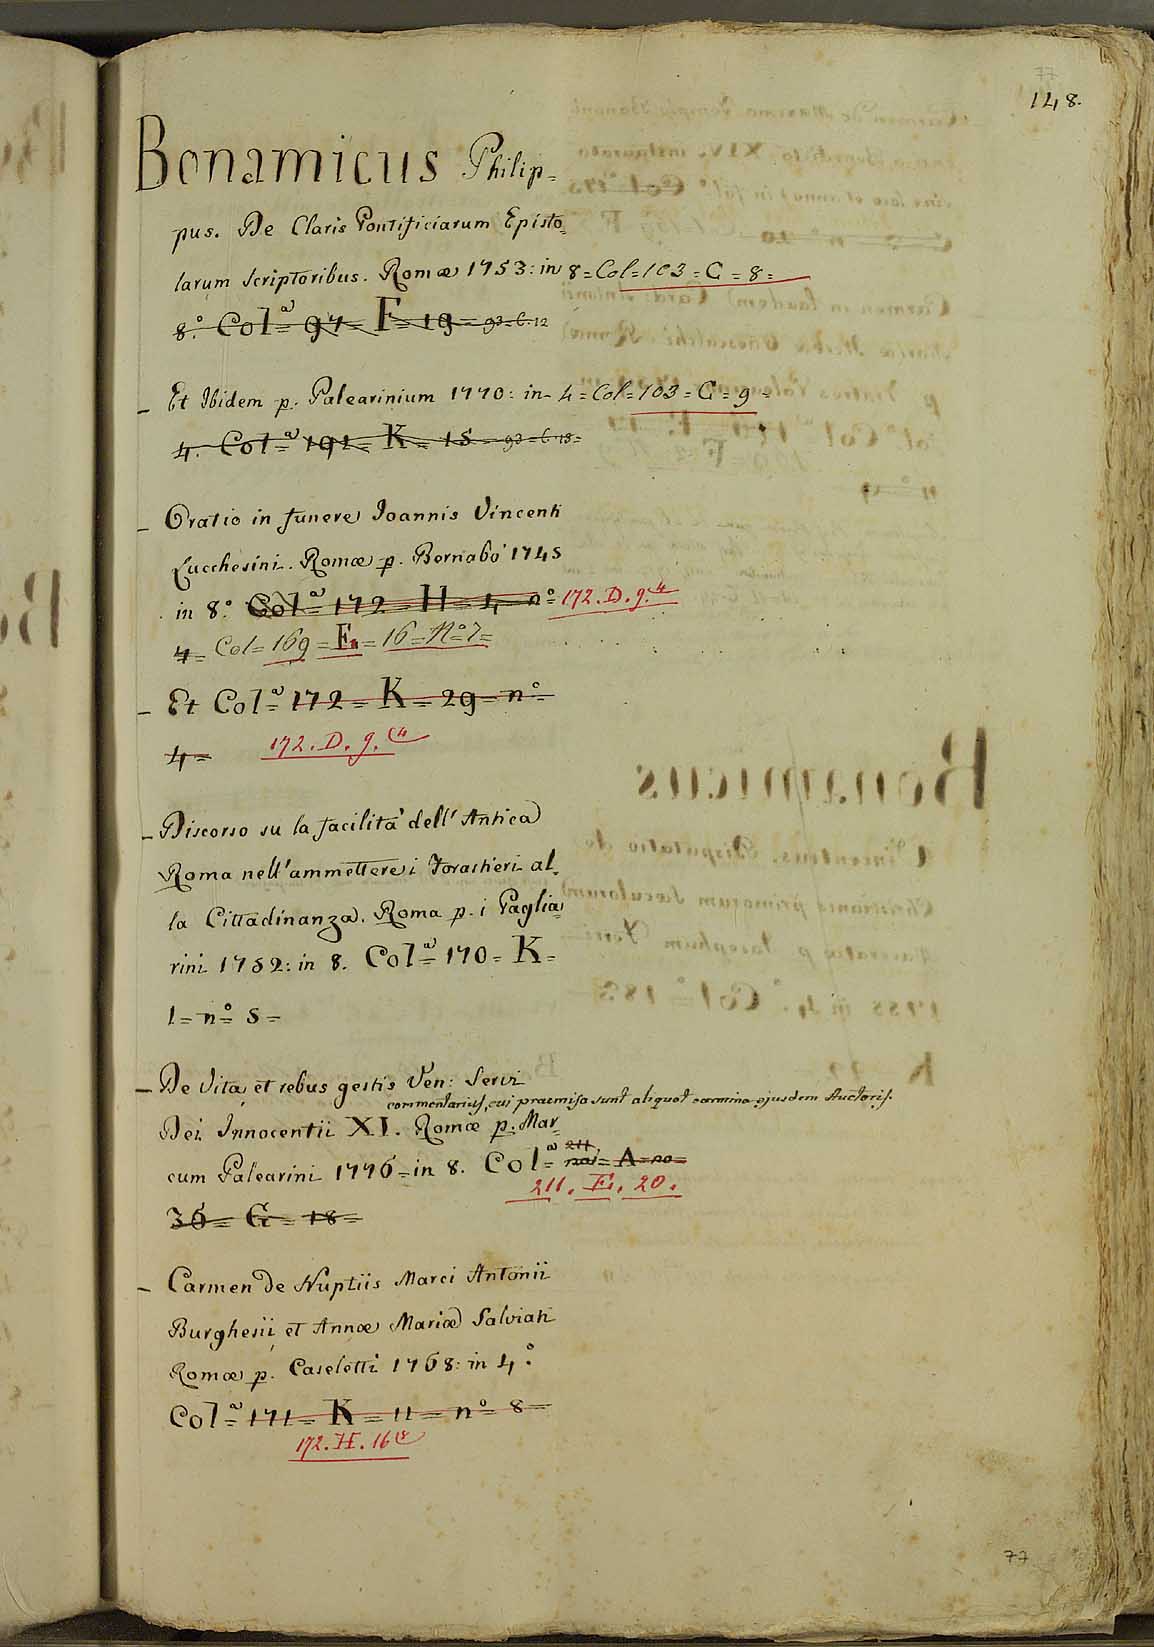 77
148.
Bonamicus Philip=
pus. De Claris Pontificiarum Episto=
larum Scriptoribus. Romæ 1753: in 8 = Col = 103 = C = 8 =
8.° Col.ª = 97 = F = 19 = 93 = C. 12
_ Et Ibidem p. Palearinium 1770: in 4 = Col = 103 = C = 9 =
4. Col.ª = 191 = K = 15 = 93 = C. 13 =
_ Oratio in funere Joannis Vincenti
Lucchesini. Romæ p. Bernabò 1745
in 8.° Col.ª = 172 = H = 4 n.° = 172. D. 9. (4
4 = Col = 169 = F = 16 = N.° 7 =
_ Et Col.ª 172 = K = 29 = n.° =
4 = 172. D. 9. (4
_ Discorso su la facilità dell' Antica
Roma nell' ammettere i Forastieri al=
la Cittadinanza. Roma p. i Paglia=
rini 1752: in 8. Col.ª = 170 = K =
1 = n.° = 5 =
_ De Vita, et rebus gestis Ven: Servi
commentarius, cui præmissa sunt aliquot carmina ejusdem Auctoris.
Dei Innocentii XI. Romæ p. Mar=
cum Palearini 1776 = in 8. Col.ª = 211 = A = no =
211. F. 20.
36 = G = 18 =
_ Carmen De Nuptiis Marci Antonii
Burghesii et Annæ Mariæ Salviati
Romæ p. Caseletti 1768: in 4.°
Col.ª = 171 = K = 11 = n.° = 8 =
172. H. 16 (8
77